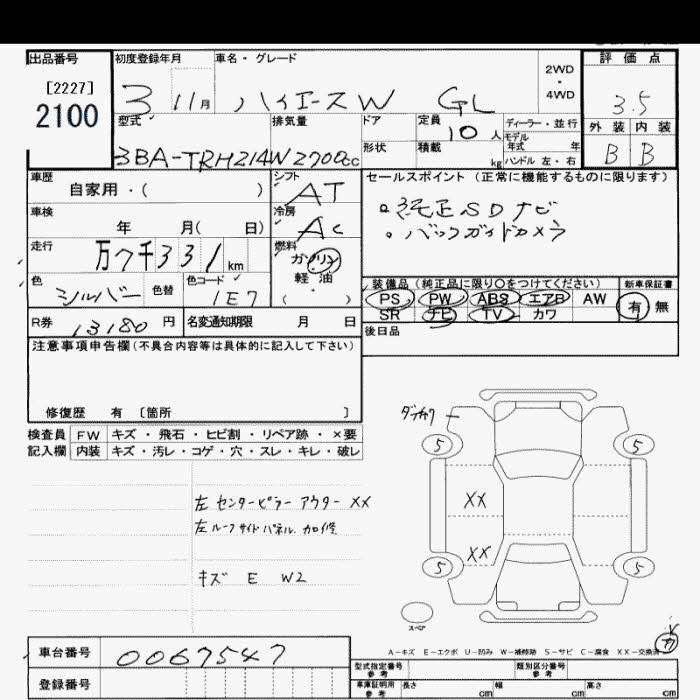 出品番号 初度登録年月 車名・グレード 2WD・4WD 評価点
[2227]
2100
3 11月 ハイエースW GL 3.5
型式 排気量 ドア 定員 10人 ディーラー・並行 外装 内装
モデル年式 年
3BA-TRH214W 2700cc 形状 積載 kg ハンドル 左・右 B B
車歴 シフト セールスポイント (正常に機能するものに限ります)
自家用・( ) AT
車検 冷房 。純正SDナビ
年 月( 日) AC 。バックガイドカメラ
走行 万7千331km 燃料 ガソリン
軽・油
( )
色 シルバー 色替 色コード 1E7
装備品 (純正品に限り○をつけてください) 新車保証書
PS PW ABS エアB AW 有 無
SR ナビ TV カワ
R券 13180円 名変通知期限 月 日
後日品
注意事項申告欄(不具合内容等は具体的に記入して下さい)
修復歴 有 〔箇所 〕
検査員 FW キズ・飛石・ヒビ割・リペア跡・×要
記入欄 内装 キズ・汚レ・コゲ・穴・スレ・キレ・破レ
左 センターピラー アウター XX
左 ルーフサイドパネル 加修
キズ E W2
5 5
XX
XX
5 5
スペア
A-キズ E-エクボ U-凹み W-補修跡 S-サビ C-腐食 XX-交換済
車台番号 0067547
型式指定番号 参考 類別区分番号 参考
登録番号
車庫証明用 参考 長さ cm 幅 cm 高さ cm